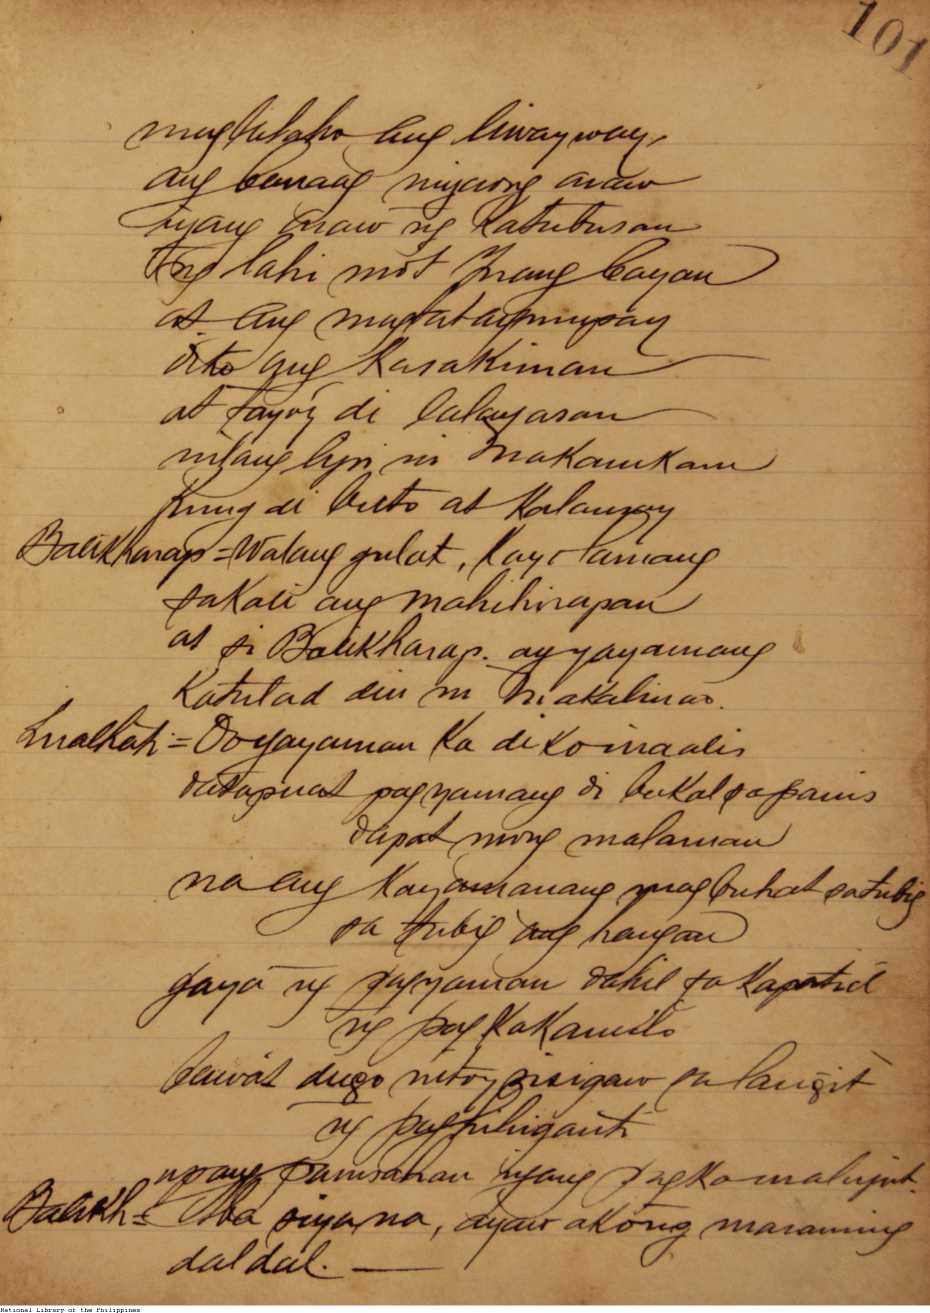 101
ang liwayway,
ang banaag niyaong araw
iyang araw ng Katubusan
ng lahi mo't Ynang bayan
at ang
dito ang Kasakiman
at tayo'y di lalayasan
nilang lipi ni Makamkam
Kung di busto at Kalansay
Balikharap = Walang gulat, Kayo lamang
sakali ang mahihirapan
at si Balikharap. ay yayamang
Katulad din ni Makalinao.
Lualhati = Oo yayaman ka di ko inaalis
datapuat pagyamang di bukal sa pawis
dapat mong malaman
na ang Kayamanang magbuhat sa tubig
sa tubig ang hangan
gaya ng pagyaman dahil sa Kapatid
ng pag Kakanulo
bawat dugo nito'y sisigaw sa langit
ng paghihiganti
upang parusahan iyang
Balikh = Aba siya na, ayaw akong maraming
daldal. —
National Library of the Philippines